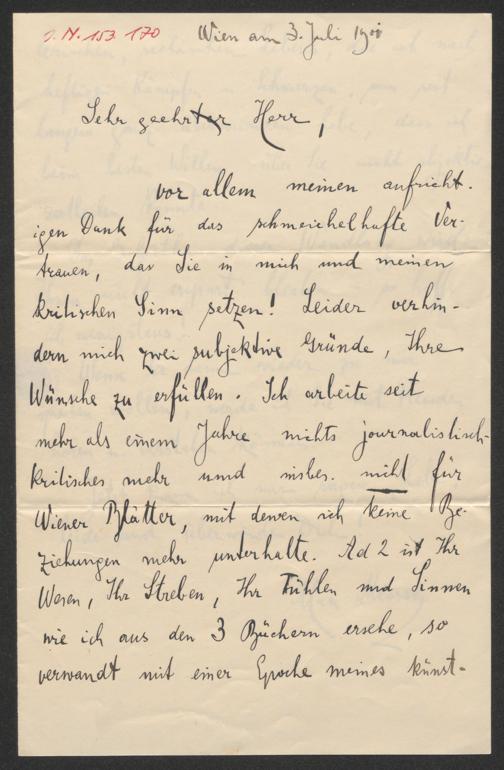 I. N. 153 170
Wien am 3. Juli 1900
Sehr geehrter Herr,
vor allem meinen aufricht-
igen Dank für das schmeichelhafte Ver-
trauen, das Sie in mich und meinen
kritischen Sinn setzen! Leider verhin-
dern mich zwei subjektive Gründe, Ihre
Wünsche zu erfüllen. Ich arbeite seit
mehr als einem Jahre nichts journalistisch-
kritisches mehr und insbes. nicht für
Wiener Blätter, mit denen ich keine Be-
ziehungen mehr unterhalte. Ad 2 ist Ihr
Wesen, Ihr Streben, Ihr Fühlen und Sinnen
wie ich aus den 3 Büchern ersehe, so
verwandt mit einer Epoche meines künst-